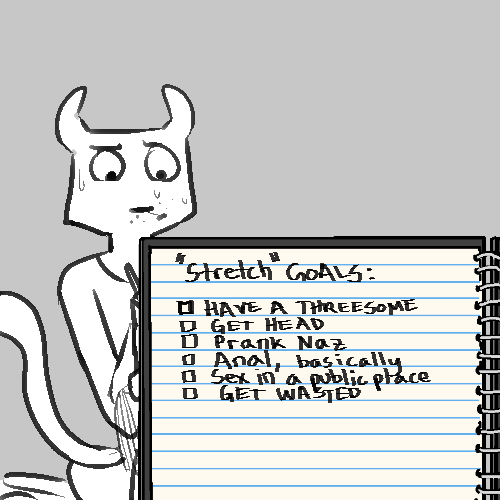 "Stretch" GOALS:
HAVE A THREESOME
GET HEAD
Prank Naz
Anal, basically
Sex in a public place
GET WASTED